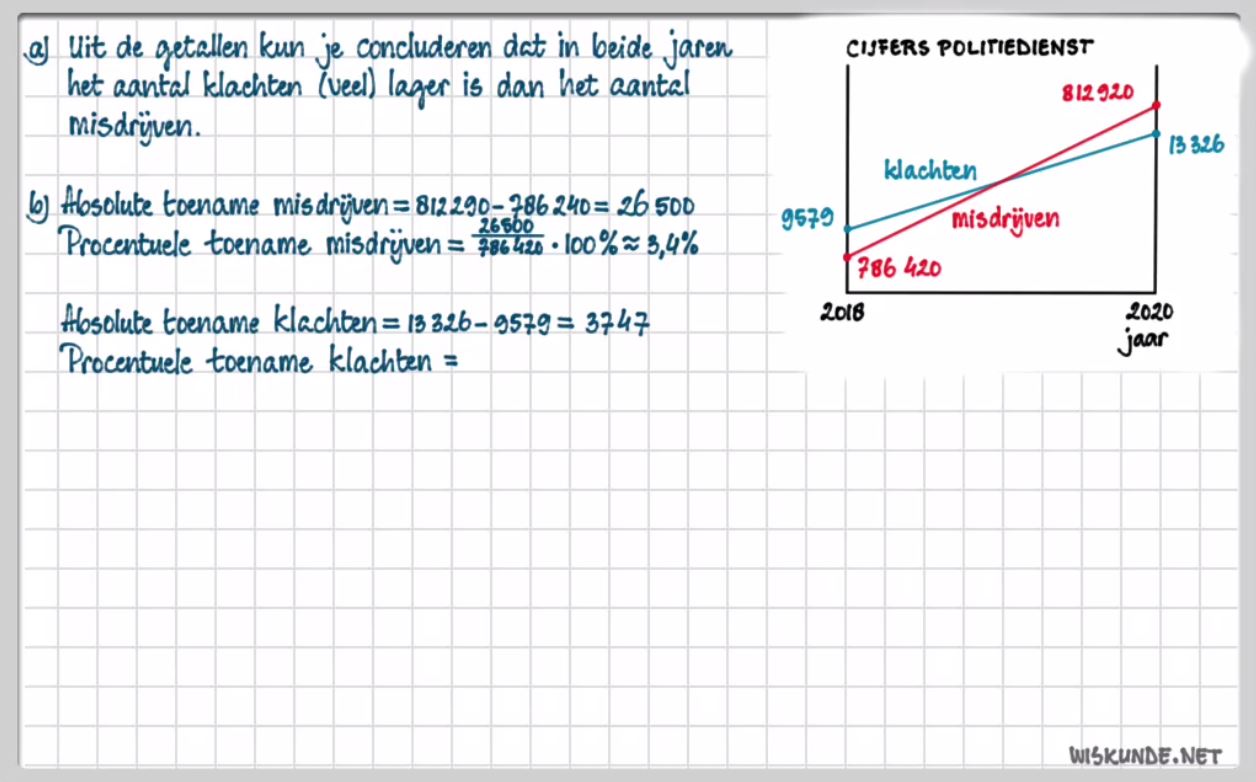 a) Uit de getallen kun je concluderen dat in beide jaren
het aantal klachten (veel) lager is dan het aantal
misdrijven.
b) Absolute toename misdrijven = 812 290 - 786 240 = 26 500
Procentuele toename misdrijven = 26500/786 420 · 100% ≈ 3,4%
Absolute toename klachten = 13 326 - 9579 = 3747
Procentuele toename klachten =
CIJFERS POLITIEDIENST
812 920
13 326
klachten
9579
misdrijven
786 420
2018
2020
jaar
WISKUNDE.NET